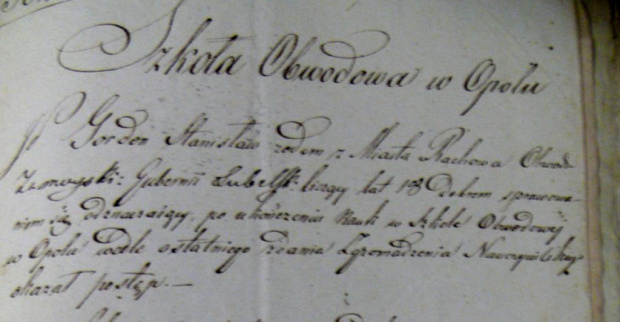 Szkoła Obwodowa w Opolu
JP Gordon Stanisław rodem z Miasta Rachowa Obwod:
Zamoyski: Gubernii Lubelsk: liczący lat 18 dobrem sprawowa-
niem się odznaczaiący, po ukończeniu Nauk w Szkole Obwodowéj
w Opolu wedle ostatniego zdania Zgromadzenia Nauczycielsk:
okazał postęp. —